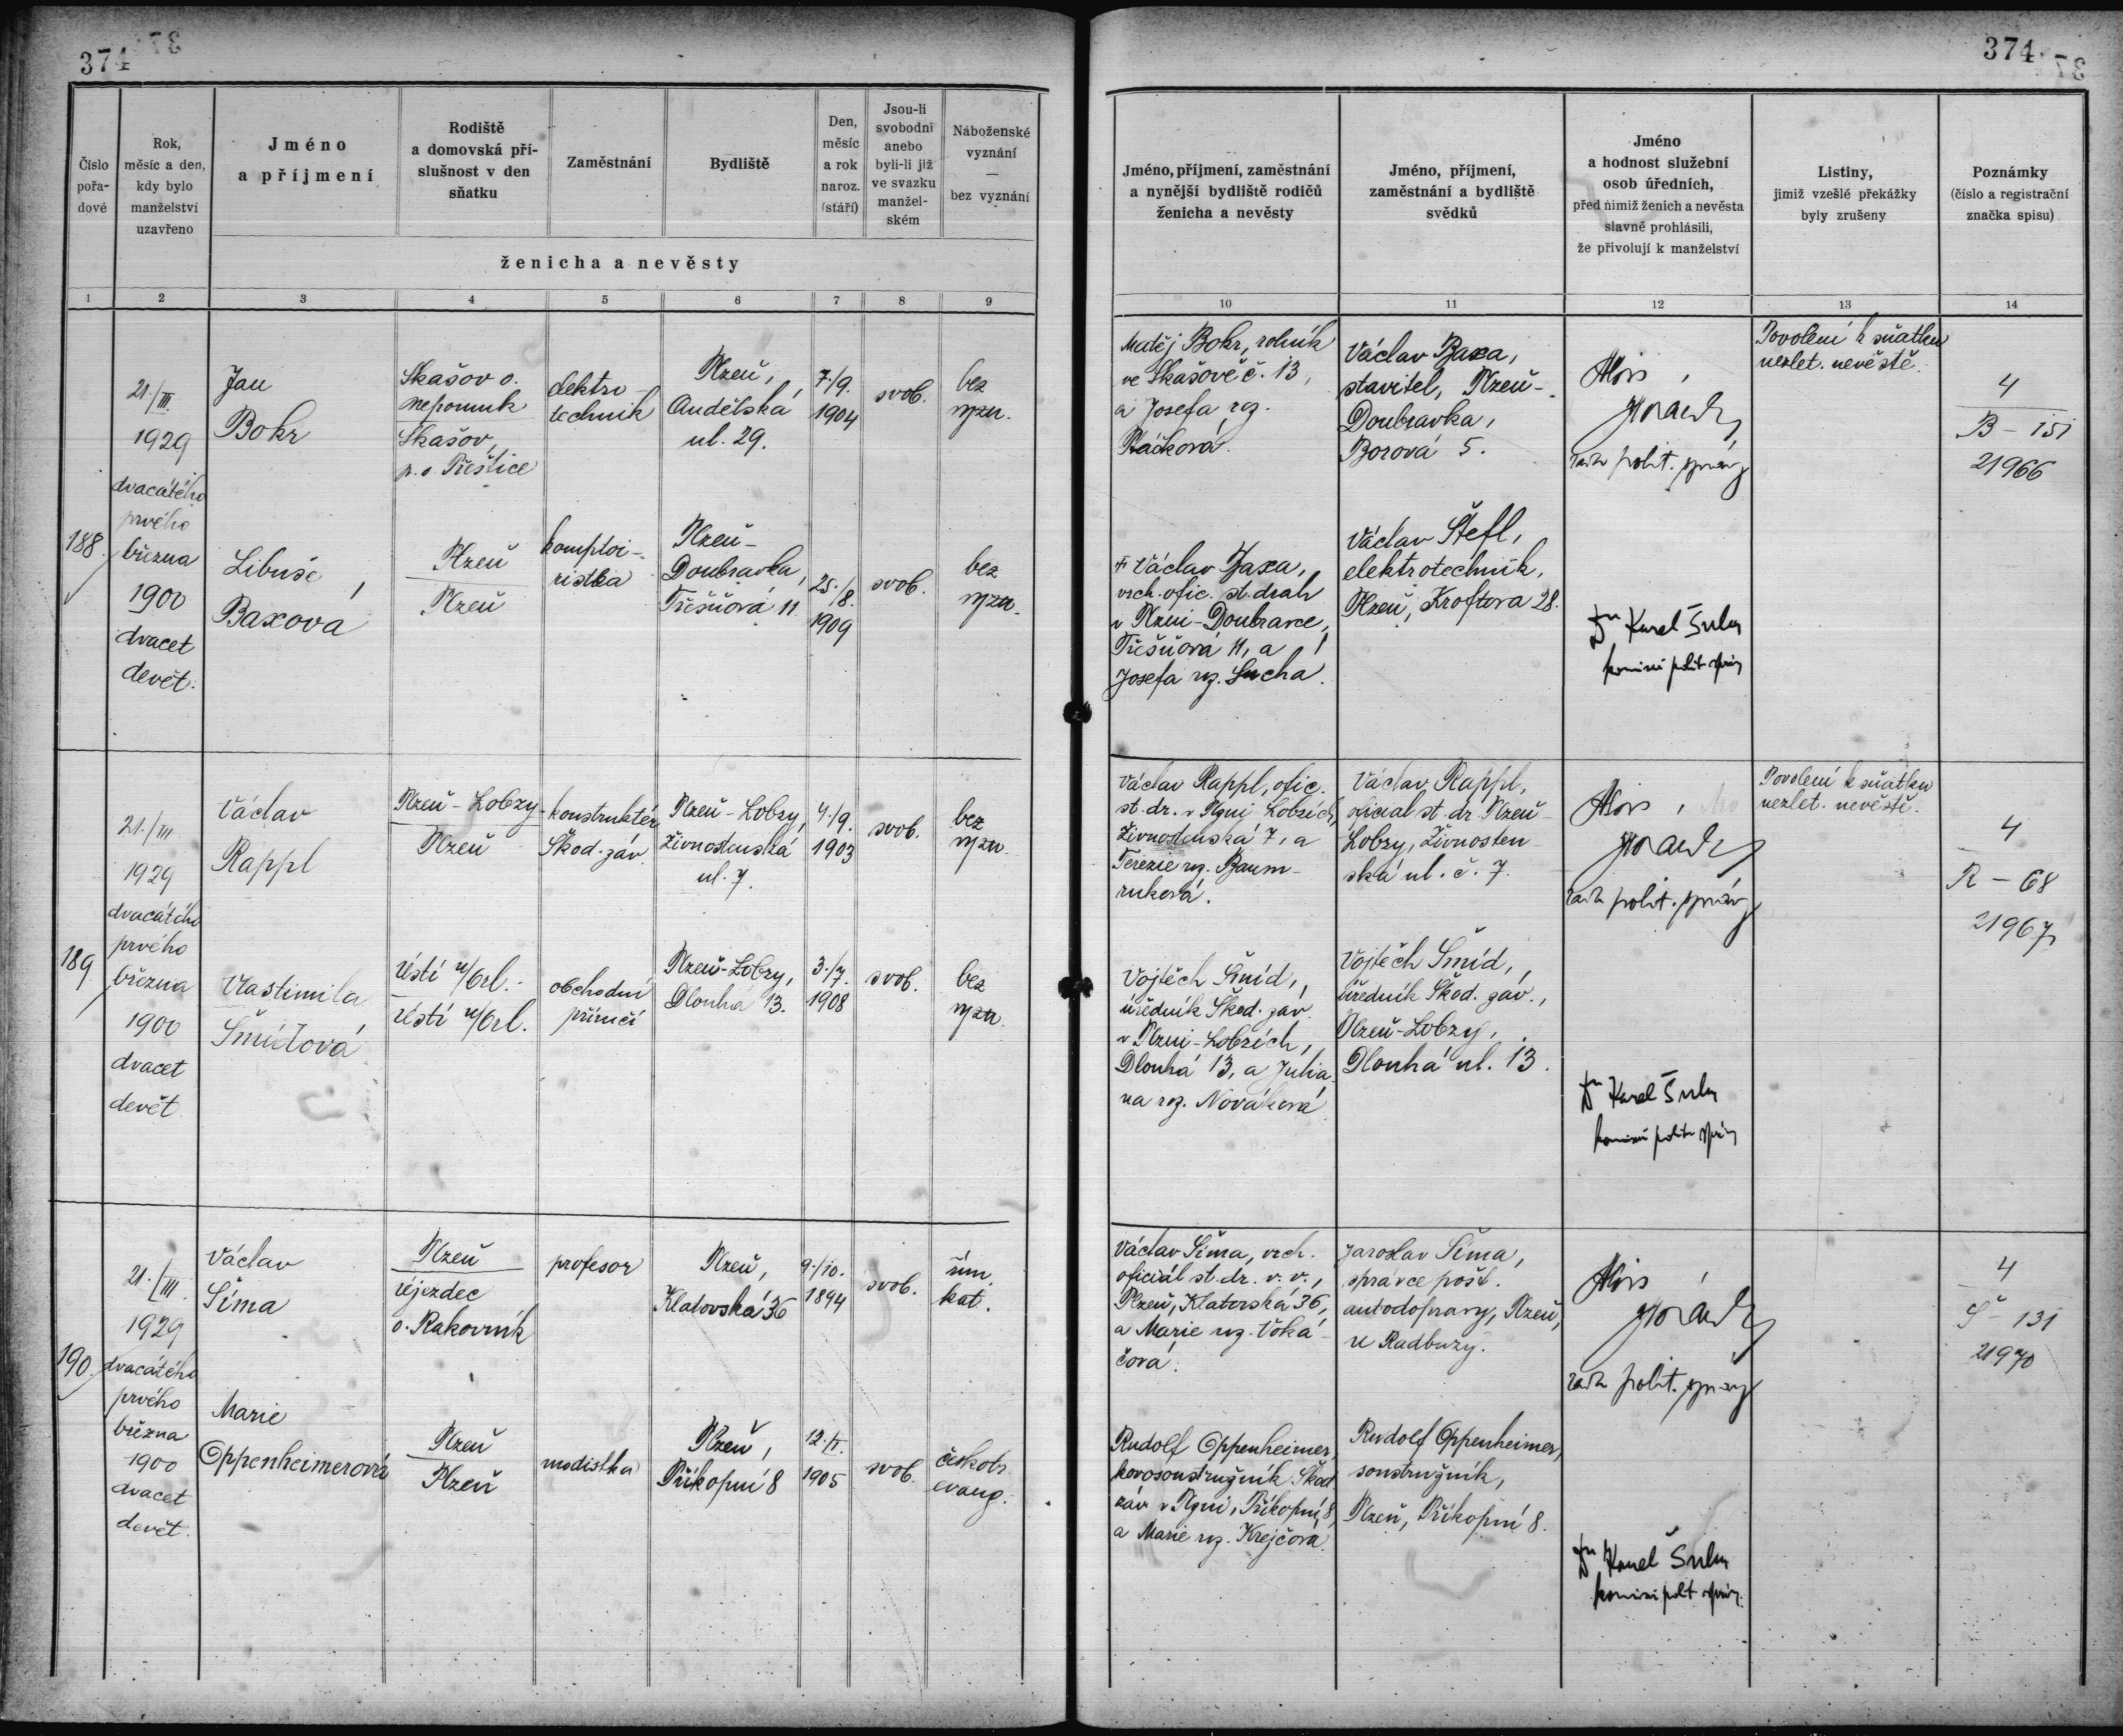 374
374
Číslo
pořa-
dové
Rok,
měsíc a den,
kdy bylo
manželství
uzavřeno
Jméno
a příjmení
Rodiště
a domovská pří-
slušnost v den
sňatku
Zaměstnání
Bydliště
Den,
měsíc
a rok
naroz.
(stáří)
Jsou-li
svobodni
anebo
byli-li již
ve svazku
manžel-
ském
Náboženské
vyznání
—
bez vyznání
ženicha a nevěsty
Jméno, příjmení, zaměstnání
a nynější bydliště rodičů
ženicha a nevěsty
Jméno, příjmení,
zaměstnání a bydliště
svědků
Jméno
a hodnost služební
osob úředních,
před nimiž ženich a nevěsta
slavně prohlásili,
že přivolují k manželství
Listiny,
jimiž vzešlé překážky
byly zrušeny
Poznámky
(číslo a registrační
značka spisu)
1 2 3 4 5 6 7 8 9
10 11 12 13 14
188.
21./III.
1929
dvacátého
prvého
března
1900
dvacet
devět.
Jan
Bokr
Skašov o.
Nepomuk
Skašov,
p. o Přeštice
elektro-
technik
Plzeň,
Andělská
ul. 29.
7./9.
1904
svob.
bez
vyzn.
Libuše
Baxová
Plzeň
Plzeň
komptoi-
ristka
Plzeň-
Doubravka,
Třešňová 11.
25./8.
1909
svob.
bez
vyzn.
Matěj Bokr, rolník
ve Skašově č. 13,
a Josefa roz.
Ptáčková.
Václav Baxa,
stavitel, Plzeň-
Doubravka,
Borová 5.
Alois
rada polit. správy
Povolení k sňatku
nezlet. nevěstě.
4
B – 151
21966
† Václav Baxa,
vrch. ofic. st. drah
v Plzni-Doubravce,
Třešňová 11, a
Josefa roz. Suchá.
Václav Štefl,
elektrotechnik,
Plzeň, Kroftova 28.
Dr Karel Šula
komisař polit. správy
189.
21./III.
1929
dvacátého
prvého
března
1900
dvacet
devět.
Václav
Rappl
Plzeň-Lobzy
Plzeň
konstruktér
Škod. záv.
Plzeň-Lobzy,
Živnostenská
ul. 7.
4./9.
1903
svob.
bez
vyzn.
Vlastimila
Šmídová
Ústí n/Orl.
Ústí n/Orl.
obchodní
příručí
Plzeň-Lobzy,
Dlouhá 13.
3./7.
1908
svob.
bez
vyzn.
Václav Rappl, ofic.
st. dr. v Plzni Lobzích,
Živnostenská 7, a
Terezie roz. Baum-
ruková.
Václav Rappl,
oficial st. dr. Plzeň-
Lobzy, Živnosten-
ská ul. č. 7.
Alois
rada polit. správy
Povolení k sňatku
nezlet. nevěstě.
4
R – 68
21967
Vojtěch Šmíd,
úředník Škod. záv.
v Plzni-Lobzích,
Dlouhá 13, a Julia-
na roz. Nováková
Vojtěch Šmíd,
úředník Škod. záv.,
Plzeň-Lobzy,
Dlouhá ul. 13.
Dr Karel Šula
komisař polit. správy
190.
21./III.
1929
dvacátého
prvého
března
1900
dvacet
devět.
Václav
Šíma
Plzeň
Újezdec
o. Rakovník
profesor
Plzeň,
Klatovská 36
9./10.
1894
svob.
řím.
kat.
Marie
Oppenheimerová
Plzeň
Plzeň
modistka
Plzeň,
Příkopní 8
1905
svob.
českobr.
evang.
Václav Šíma, vrch.
oficiál st. dr. v. v.,
Plzeň, Klatovská 36,
a Marie roz. Voká-
čová.
Jaroslav Šíma,
správce pošt.
autodopravy, Plzeň,
u Radbuzy.
Alois
rada polit. správy
4
Š – 131
21970
Rudolf Oppenheimer,
kovosoustružník Škod.
záv. v Plzni, Příkopní 8,
a Marie roz. Krejčová.
Rudolf Oppenheimer,
soustružník,
Plzeň, Příkopní 8.
Dr Karel Šula
komisař polit. správy